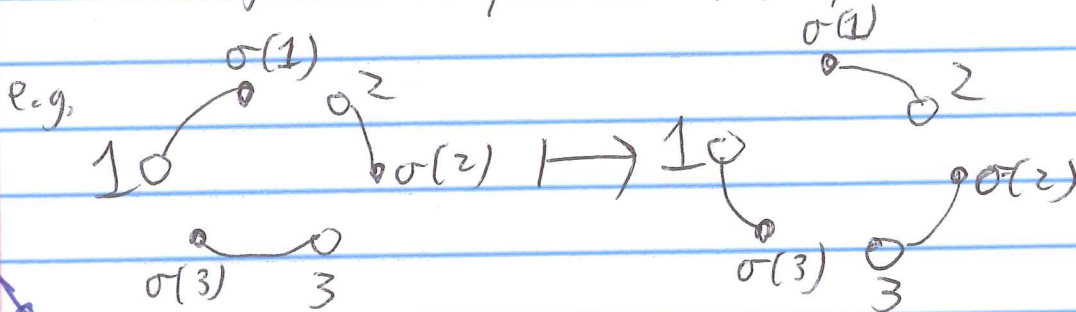 e.g.
σ(1) 2
1 σ(2)
σ(3) 3
↦
σ(1) 2
1 σ(2)
σ(3) 3